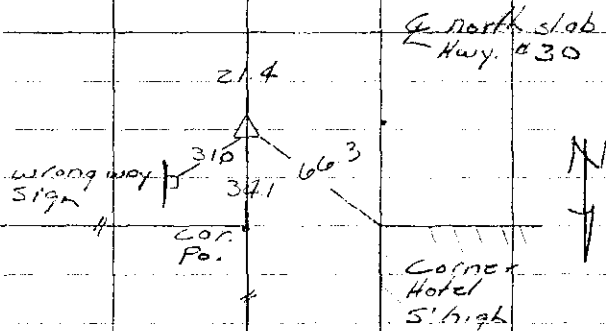 ℄ north slab
Hwy. #30
21.4
310
66 3
wrong way
Sign
34.1
N
Cor.
Po.
Corner
Hotel
5' high